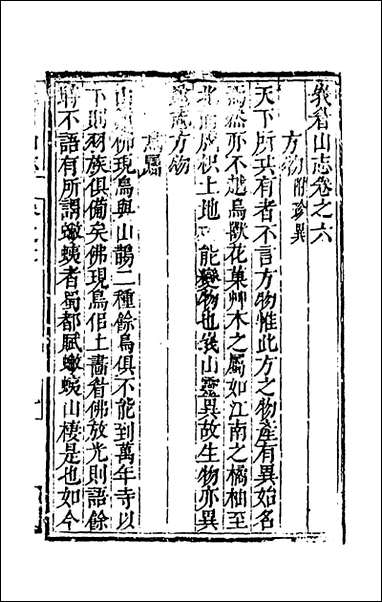 峩眉山志卷之六
方物 附珍異
天下所共有者不言方物惟此方之物產有異始名
焉然亦不越鳥獸花菓艸木之屬如江南之橘柚至
北而成枳土地 能變物也峩山靈異故生物亦異
志方物
鳥屬
山 佛現鳥與山鵲二種餘鳥俱不能到萬年寺以
下則羽族俱備矣佛現鳥佀土畵眉佛放光則語餘
時不語有所謂蠍蛦者蜀都賦蠍蜿山棲是也如今